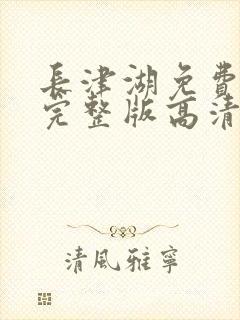 長津湖免費
完整版高清
清風雅寧